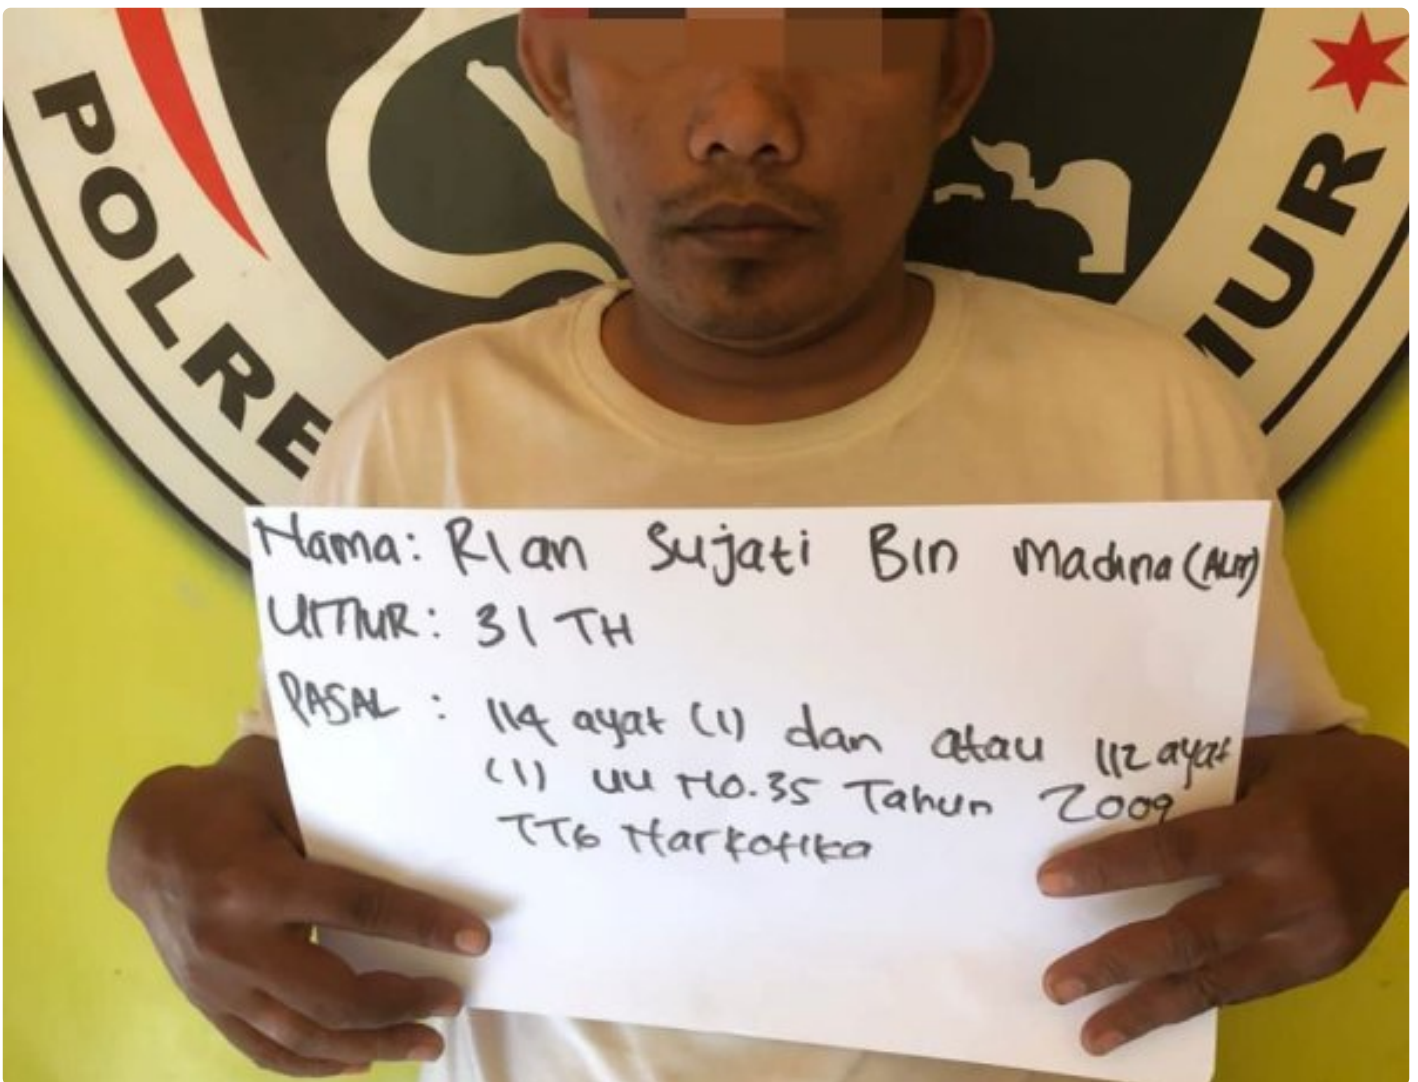 POLRE
IUR
Nama: Rian Sujati Bin Madina (ALM)
UMUR: 31 TH
PASAL : 114 ayat (1) dan atau 112 ayat
(1) UU NO.35 Tahun 2009
TTG Narkotika